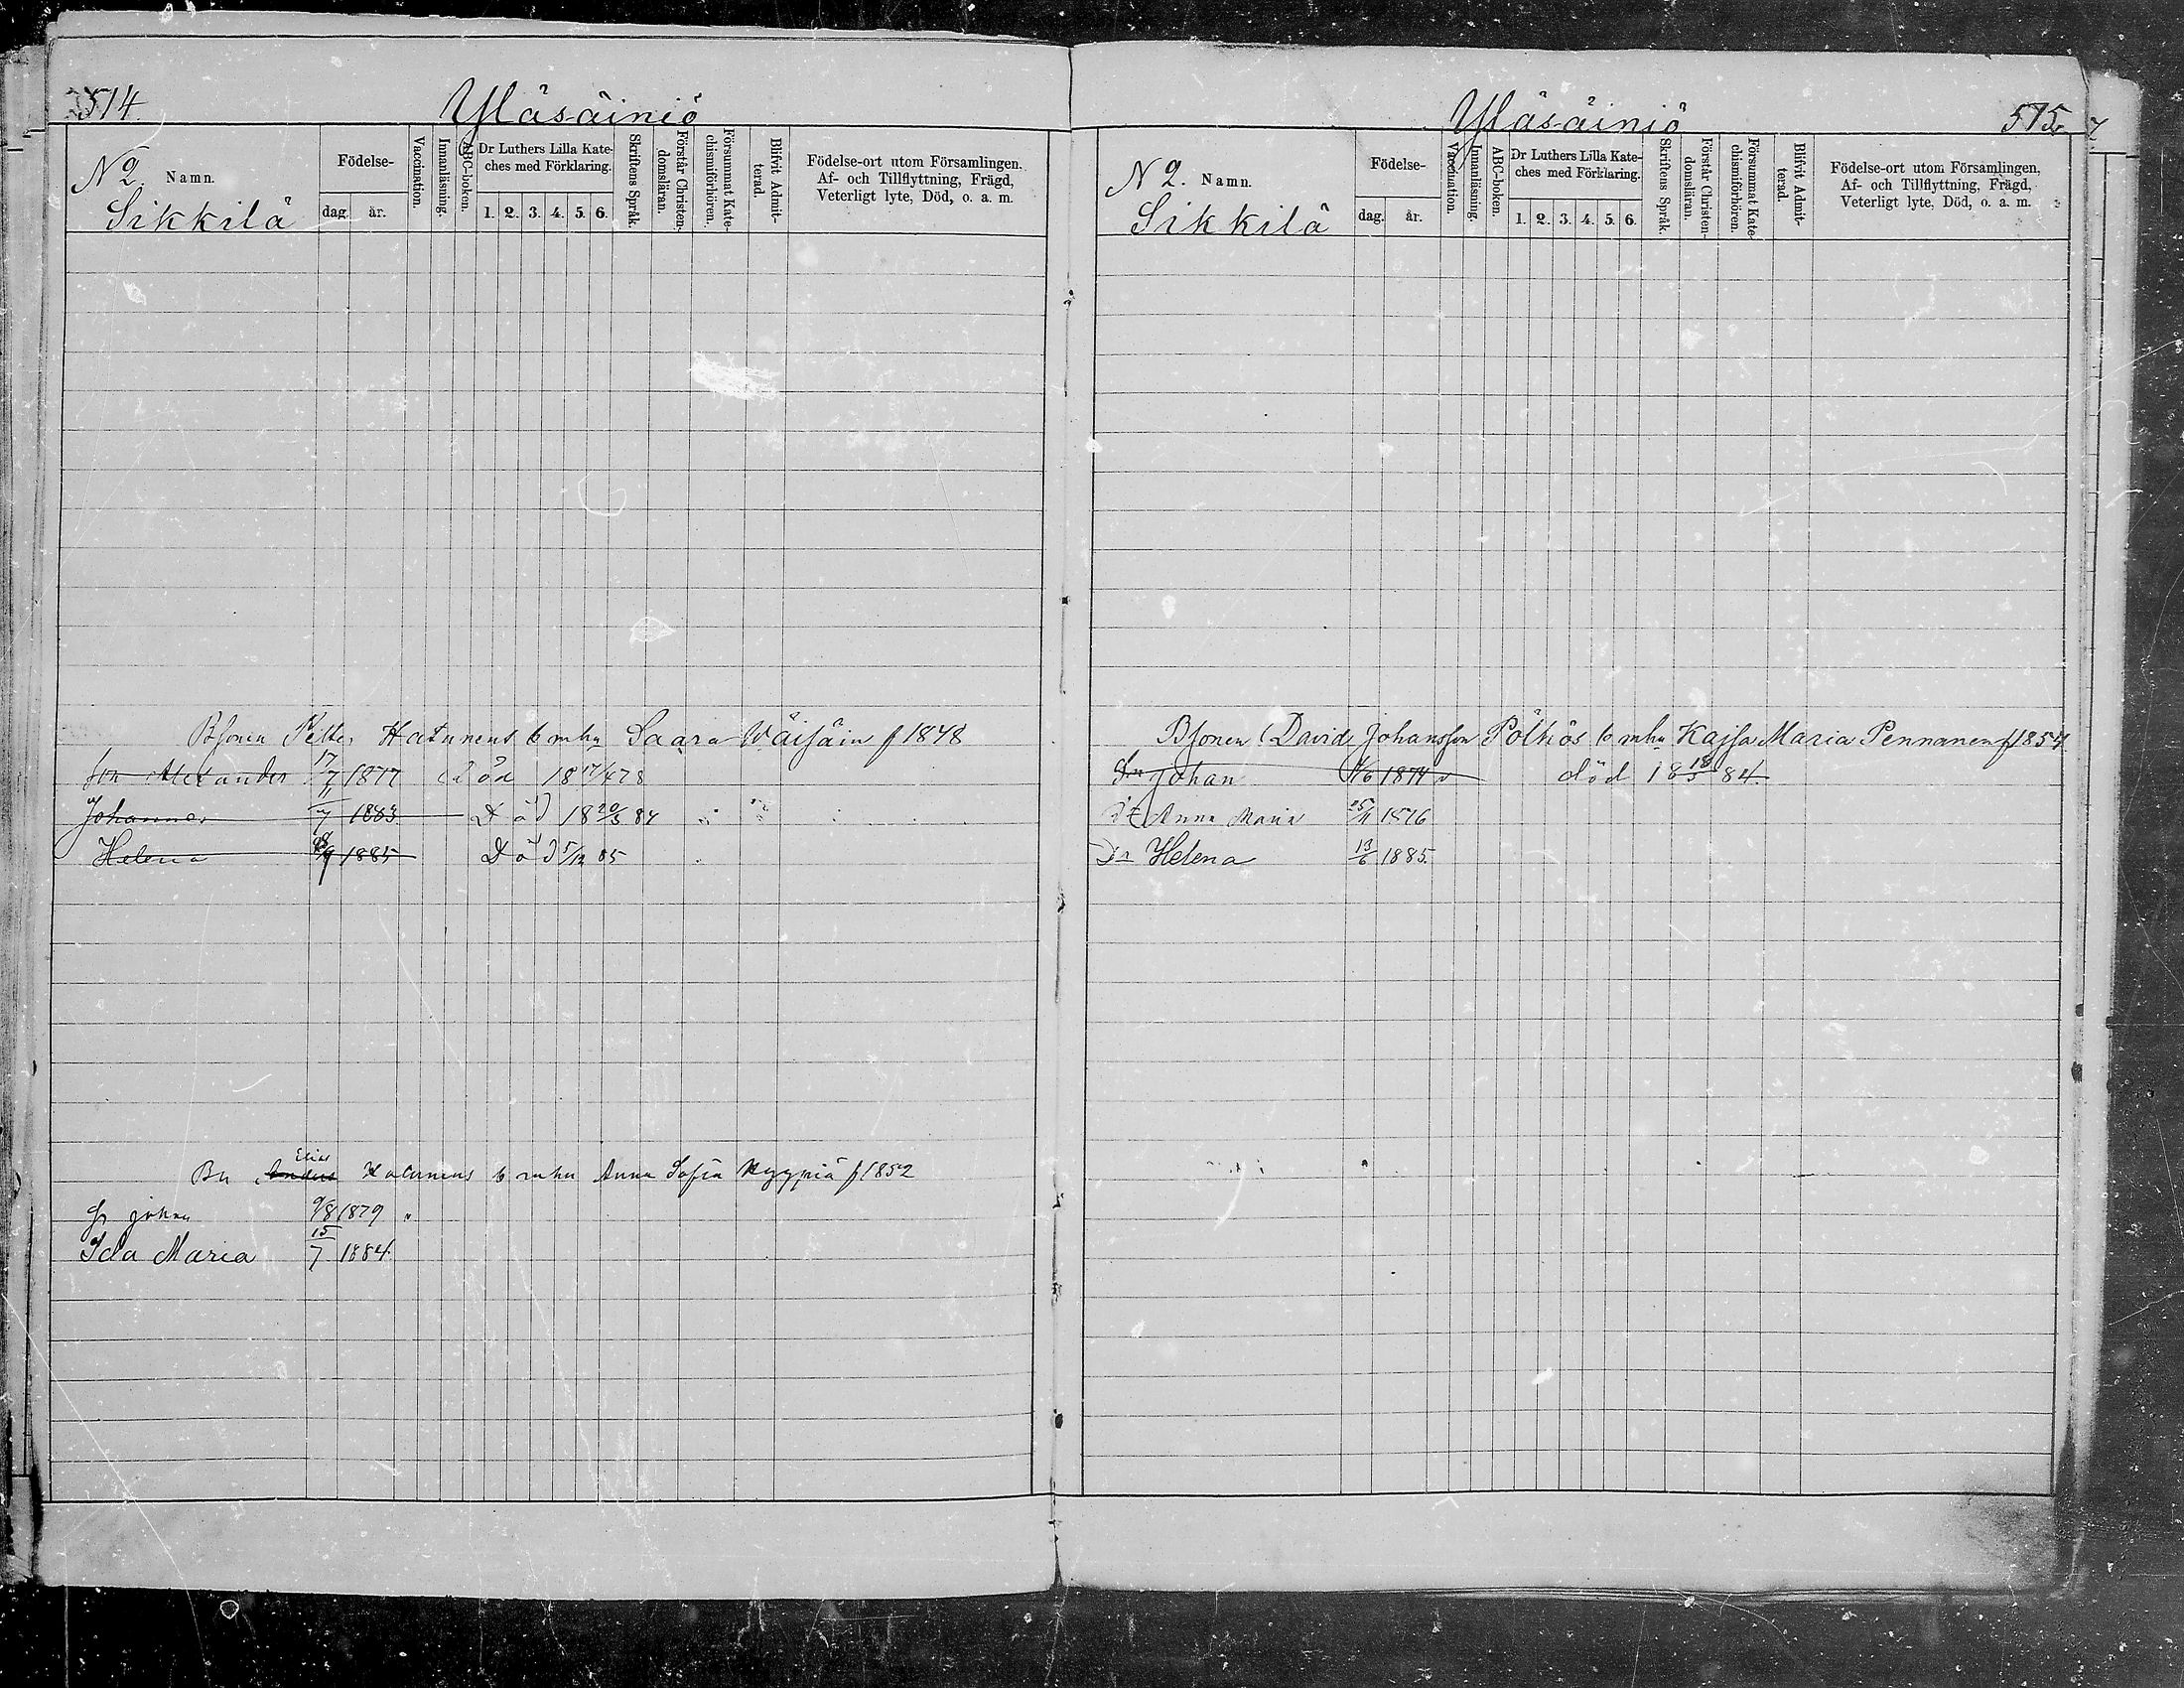 514. Yläsäiniö
N 2 Namn. Födelse- Vaccination. Innanläsning. ABC-boken. Dr Luthers Lilla Kateches med Förklaring. Skriftens Språk. Förstår Christendomsläran. Försummat Katechismiförhören. Blifvit Admitterad. Födelse-ort utom Församlingen. Af- och Tillflyttning, Frägd, Veterligt lyte, Död, o. a. m.
Sikkilä dag. år. 1. 2. 3. 4. 5. 6.
Bsonen Petter Hatunens b mhu Saara Wäisäin f 1848
Son Alexander 17/7 1877 död 18 17/4 78
Johannes /7 1883 Död 18 20/5 84
Helena 8/9 1885 Död 5/12 85
Elias
Bn Anders Hatunens b mhu Anna Sofia Kyypiä f 1852
Sn johan 9/8 1879 "
Ida Maria 15/7 1884.
Yläsäiniö 515.
N 2. Namn. Födelse- Vaccination. Innanläsning. ABC-boken. Dr Luthers Lilla Kateches med Förklaring. Skriftens Språk. Förstår Christendomsläran. Försummat Katechismiförhören. Blifvit Admitterad. Födelse-ort utom Församlingen, Af- och Tillflyttning, Frägd, Veterligt lyte, Död, o. a. m.
Sikkilä dag. år. 1. 2. 3. 4. 5. 6.
Bsonen David Johansson Pölhös b mhu Kajsa Maria Pennanen f 1857
Sn Johan /6 1874 v död 18 18/5 84.
Dt Anna Maria 25/11 1876
Dr Helena 13/6 1885.